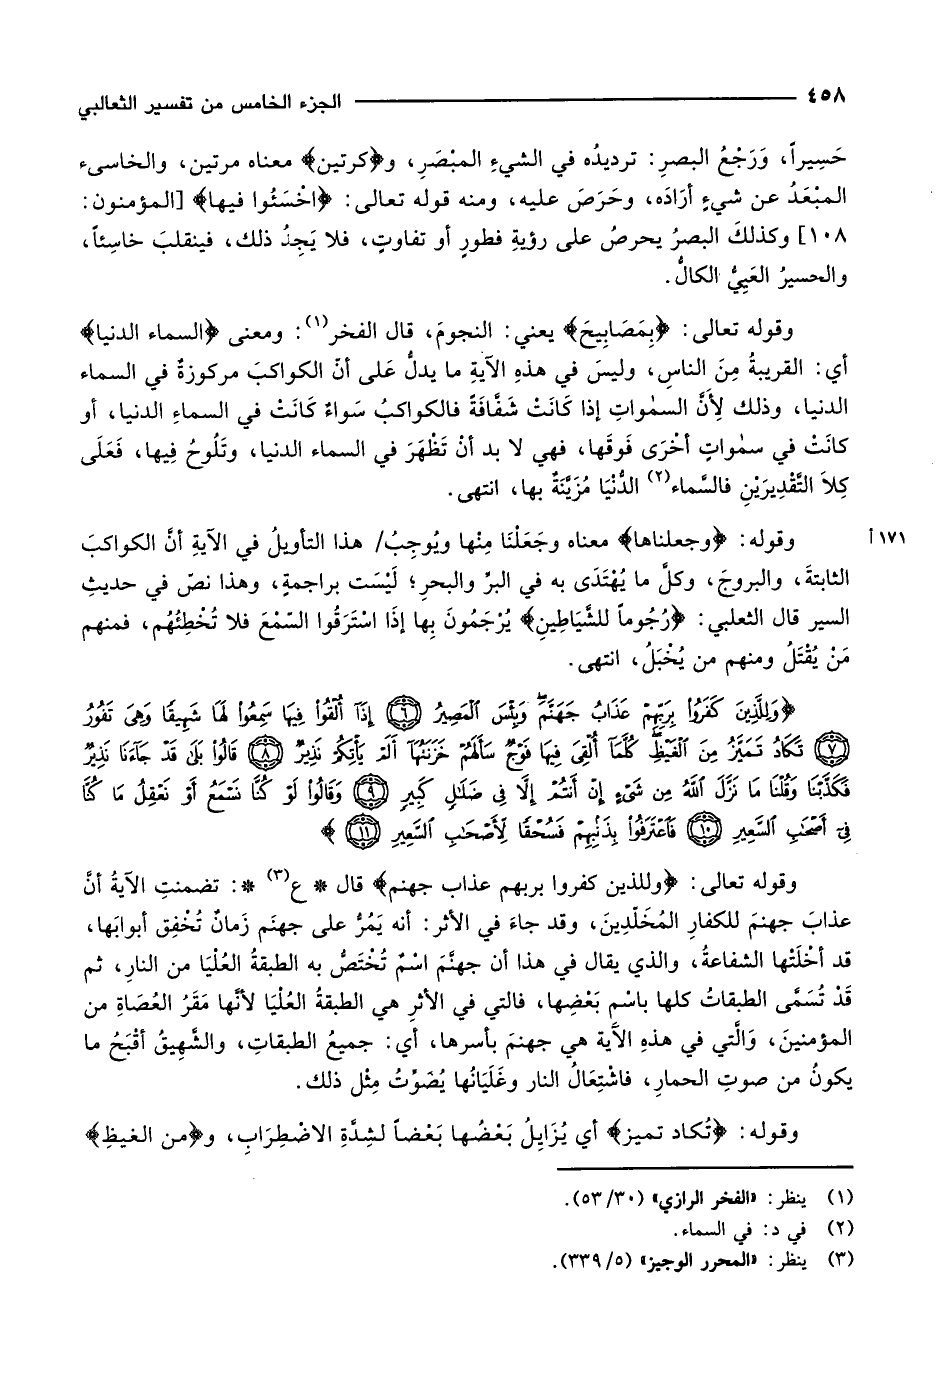 ٤٥٨ الجزء الخامس من تفسير الثعالبي
حَسِيراً، وَرَجْعُ البصرِ: ترديدُه في الشيءِ المبْصَرِ، و﴿كرتين﴾ معناه مرتين، والخاسىء
المبْعَدُ عن شيءٍ أرَادَه، وحَرَصَ عليه، ومنه قوله تعالى: ﴿اخْسَئُوا فيها﴾ [المؤمنون:
١٠٨] وكذلكَ البصرُ يحرصُ على رؤيةِ فطورٍ أو تفاوتٍ، فلا يَجِدُ ذلك، فينقلبَ خاسِئاً،
والحسيرُ العَيِيُّ الكالُّ.
وقوله تعالى: ﴿بِمَصَابِيحَ﴾ يعني: النجومَ، قال الفخر(١): ومعنى ﴿السماء الدنيا﴾
أي: القريبةُ مِنَ الناسِ، وليسَ في هذهِ الآيةِ ما يدلُّ عَلى أنّ الكواكبَ مركوزةٌ في السماء
الدنيا، وذلك لِأَنَّ السمٰواتِ إذا كَانَتْ شَفَّافَةً فالكواكبُ سَواءٌ كَانَتْ في السماءِ الدنيا، أو
كانَتْ في سمٰواتٍ أخْرَى فَوقَها، فهي لا بد أنْ تَظْهَرَ في السماء الدنيا، وتَلُوحُ فِيها، فَعَلَى
كِلاَ التَّقْدِيرَيْنِ فالسَّماء(٢) الدُّنْيَا مُزَيَّنَةٌ بها، انتهى.
وقوله: ﴿وجعلناها﴾ معناه وجَعَلْنَا مِنْها ويُوجِبُ/ هذا التأويلُ في الآيةِ أنَّ الكواكبَ ١٧١أ
الثابتةَ، والبروجَ، وكلَّ ما يُهْتَدَى به في البرِّ والبحرِ؛ لَيْسَت براجمةٍ، وهذا نصّ في حديثِ
السير قال الثعلبي: ﴿رُجُوماً للشَّيَاطِينِ﴾ يُرْجَمُونَ بِها إذَا اسْتَرَقُوا السّمْعَ فلا تُخْطِئُهُم، فمنهم
مَنْ يُقْتَلُ ومنهم من يُخْبَلُ، انتهى.
﴿وَلِلَّذِينَ كَفَرُواْ بِرَبِّهِمْ عَذَابُ جَهَنَّمَ وَبِئْسَ ٱلْمَصِيرُ ٦ إِذَآ أُلْقُواْ فِيهَا سَمِعُواْ لَهَا شَهِيقًا وَهِىَ تَفُورُ
٧ تَكَادُ تَمَيَّزُ مِنَ ٱلْغَيْظِ كُلَّمَآ أُلْقِىَ فِيهَا فَوْجٌ سَأَلَهُمْ خَزَنَتُهَآ أَلَمْ يَأْتِكُمْ نَذِيرٌ ٨ قَالُواْ بَلَىٰ قَدْ جَآءَنَا نَذِيرٌ
فَكَذَّبْنَا وَقُلْنَا مَا نَزَّلَ ٱللَّهُ مِن شَىْءٍ إِنْ أَنتُمْ إِلَّا فِى ضَلَٰلٍ كَبِيرٍ ٩ وَقَالُواْ لَوْ كُنَّا نَسْمَعُ أَوْ نَعْقِلُ مَا كُنَّا
فِىٓ أَصْحَٰبِ ٱلسَّعِيرِ ١٠ فَٱعْتَرَفُواْ بِذَنۢبِهِمْ فَسُحْقًا لِّأَصْحَٰبِ ٱلسَّعِيرِ ١١﴾
وقوله تعالى: ﴿وللذين كفروا بربهم عذاب جهنم﴾ قال * ع(٣) *: تضمنتِ الآيةُ أنَّ
عذابَ جهنمَ للكفارِ المُخَلّدِينَ، وقد جاءَ في الأثر: أنه يَمُرُّ على جهنم زَمانٌ تُخْفِق أبوابَها،
قد أخْلَتْها الشفاعةُ، والذي يقال في هذا أن جهنَّمَ اسْمٌ تُخْتَصُّ به الطبقةُ العُلْيَا من النارِ، ثم
قَدْ تُسَمَّى الطبقاتُ كلها باسْمِ بَعْضِها، فالتي في الأثرِ هي الطبقةُ العُلْيَا لأنَّها مَقَرُ العُصَاةِ من
المؤمنينَ، وَالَّتي في هذهِ الآَية هي جهنمَ بأسرها، أي: جميعُ الطبقاتِ، والشَّهِيقُ أقْبَحُ ما
يكونُ من صوتِ الحمارِ، فاشْتِعَالُ النار وغَلَيَانُها يُصَوِّتُ مِثْل ذلك.
وقوله: ﴿تُكاد تميز﴾ أي يُزَايِلُ بَعْضُها بَعْضاً لشِدَّةِ الاضْطِرَابِ، و﴿من الغيظِ﴾
(١) ينظر: «الفخر الرازي» (٥٣/٣٠).
(٢) في د: في السماء.
(٣) ينظر: «المحرر الوجيز» (٣٣٩/٥).